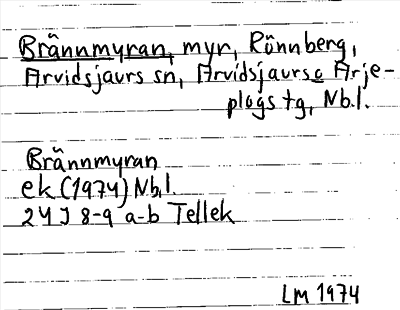 Brännmyran, myr, Rönnberg,
Arvidsjaurs sn, Arvidsjaurs o Arje-
plogs tg, Nb.l.
Brännmyran
ek (1974) Nb.l.
24J 8-9 a-b Tellek
LM 1974